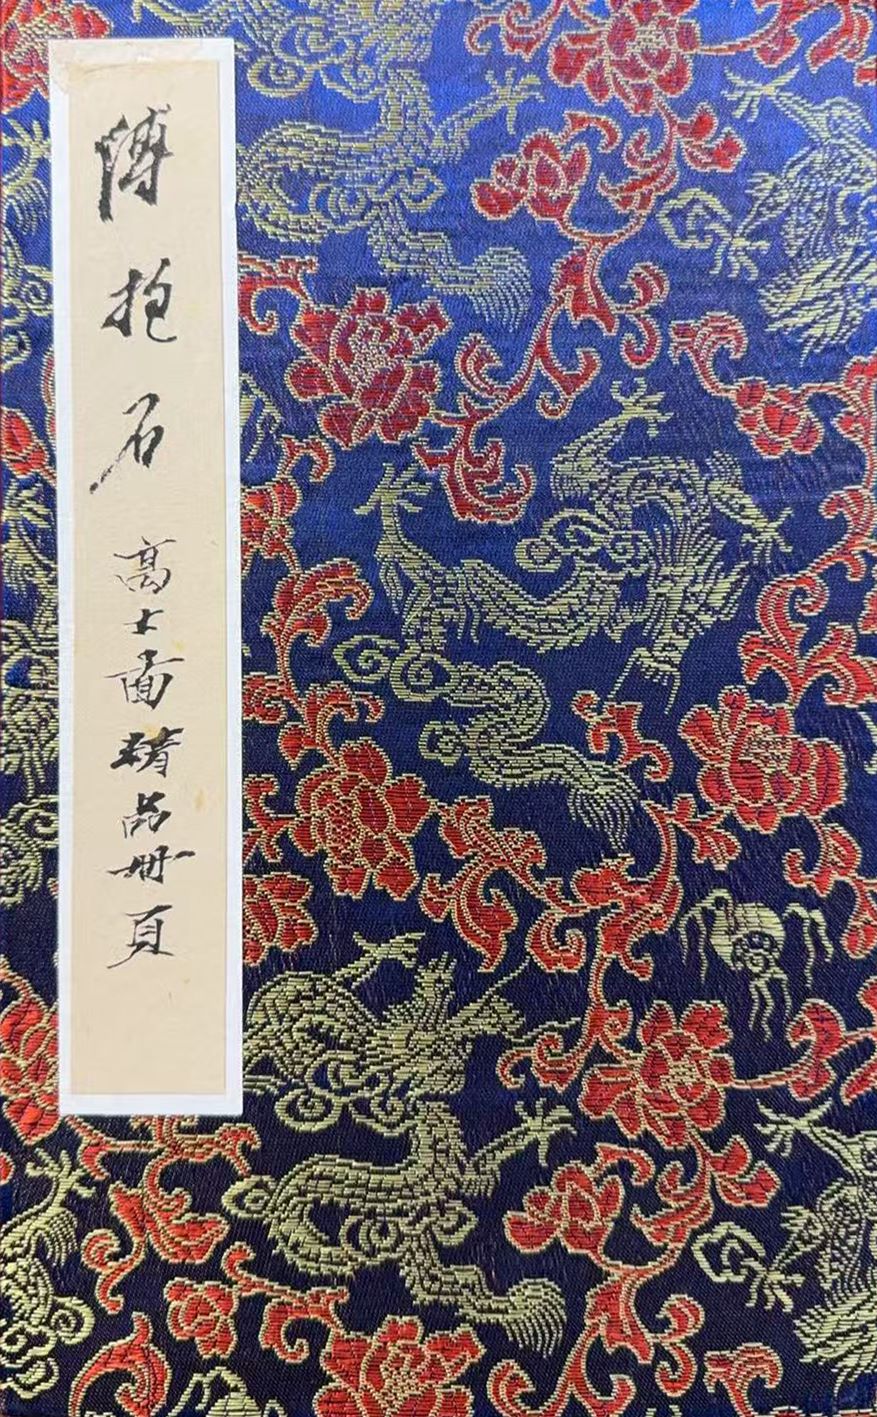 傅抱石高士画精品册頁